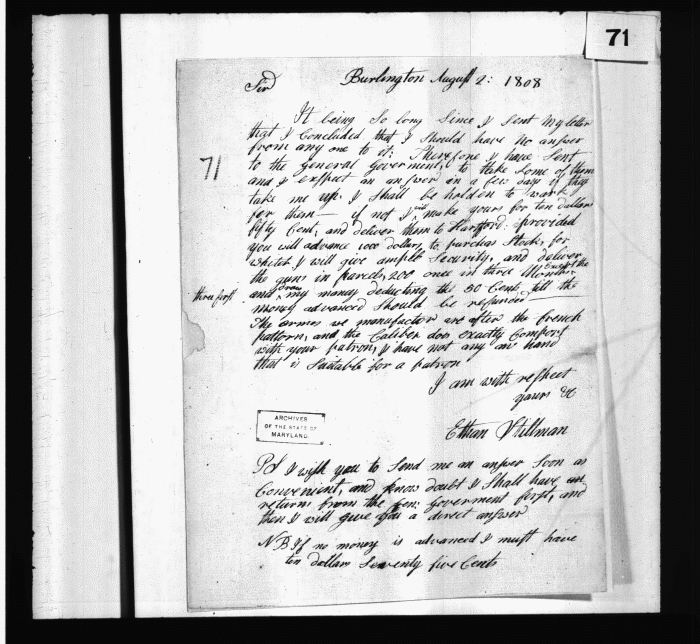 71
Burlington August 2: 1808
Sir
It being So long Since I Sent My letter
that I Concluded that I Should have No answer
from any one to it; Therefore I have Sent
to the general Goverment, to take Some of them
and I exspect an answer in a few days if they
take me up, I Shall be holden to work
for them — if not I will make yours for ten dollars
fifty Cent; and deliver them to Hartford: provided
you will advance 1000 dollars to purchas Stock, for
which I will give ample Security, and deliver
the guns in parcels, 200 once in three Months,
Except the
three first
and draw my money deducting the 50 Cents till the
money advanced Should be refunded
The armes we manufactor are after the french
pattorn, and the Caliber does exactly Comport
with your patron, I have not any on hand
that is Suitable for a patron
I am with respect
yours &c
Ethan Stillman
71
ARCHIVES
OF THE STATE OF
MARYLAND
PS I wish you to Send me an answer Soon as
Convenient, and know doubt I Shall have
returns from the Gen: Goverment first, and
then I will give you a direct answer
NB If no money is advanced I must have
ten dollars Seventy five Cents